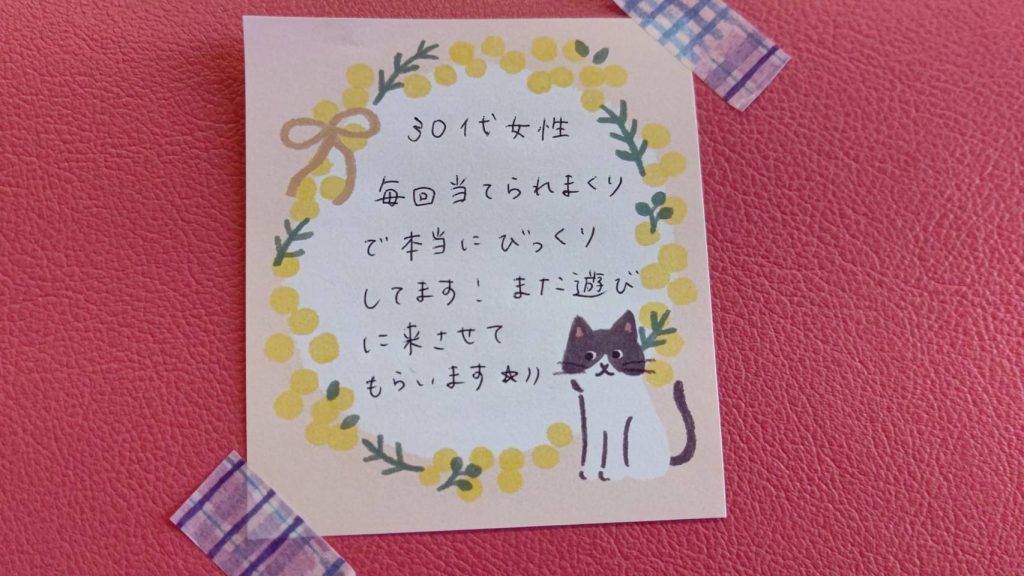 30代女性
毎回当てられまくり
で本当にびっくり
してます! また遊び
に来させて
もらいます☆))